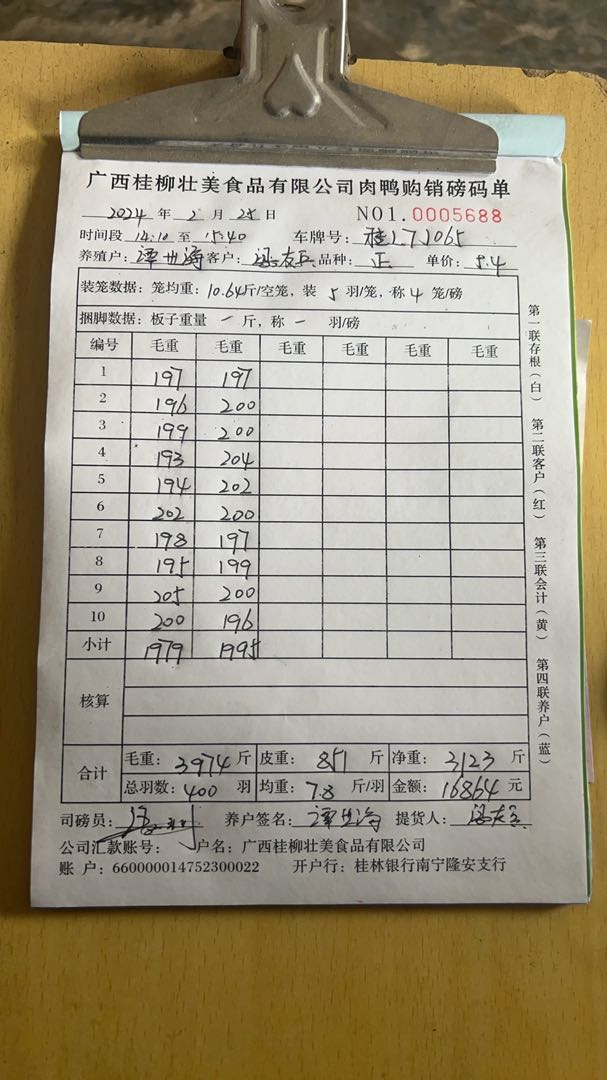 广西桂柳壮美食品有限公司肉鸭购销磅码单
2024 年 2 月 25 日 NO1.0005688
时间段 14:10 至 15:40 车牌号: 桂L7J065
养殖户: 谭世海 客户: 友 品种: 正 单价: 5.4
装笼数据: 笼均重: 10.64斤/空笼, 装 5 羽/笼, 称 4 笼/磅
捆脚数据: 板子重量 一 斤, 称 一 羽/磅
编号 毛重 毛重 毛重 毛重 毛重 毛重
1 197 197
2 196 200
3 199 200
4 193 204
5 194 202
6 202 200
7 198 197
8 195 199
9 205 200
10 200 196
小计 1979 1995
核算
合计 毛重: 3974 斤 皮重: 851 斤 净重: 3123 斤
总羽数: 400 羽 均重: 7.8 斤/羽 金额: 16864 元
司磅员: 养户签名: 谭世海 提货人: 友
公司汇款账号: 户名: 广西桂柳壮美食品有限公司
账 户: 660000014752300022 开户行: 桂林银行南宁隆安支行
第一联存根(白) 第二联客户(红) 第三联会计(黄) 第四联养户(蓝)